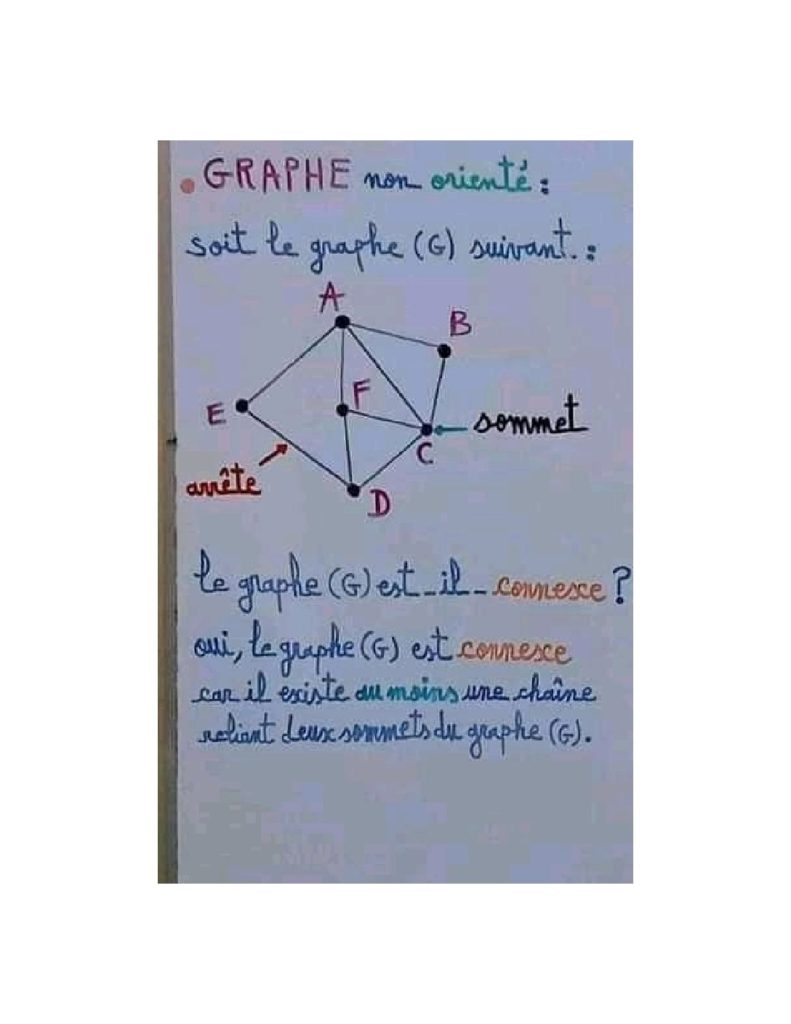 • GRAPHE non orienté :
soit le graphe (G) suivant. :
A
B
E
F
sommet
C
arrête
D
le graphe (G) est-il-connexe ?
oui, le graphe (G) est connexe
car il existe au moins une chaîne
reliant deux sommets du graphe (G).